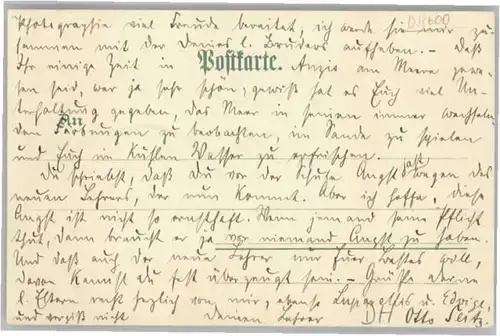 Photographie viel Freude bereitet, ich werde sie mir zu-
sammen mit der Deines l. Bruders aufheben. – Daß
Ihr einige Zeit in Anzio am Meere gewe-
sen seid, war ja sehr schön; gewiß hat es Euch viel Un-
terhaltung gegeben, das Meer in seinen immer wechseln
den Färbungen zu beobachten, im Sande zu spielen
und Euch im kühlen Wasser zu erfrischen.
Du schriebst, daß Du vor der Schule Angst hast wegen des
neuen Lehrers, der nun kommt. Aber ich hoffe, diese
Angst ist nicht so ernsthaft. Wenn jemand seine Pflicht
thut, dann braucht er ja vor niemand Angst zu haben.
Und daß auch der neue Lehrer nur Euer Bestes will,
davon kannst Du fest überzeugt sein. – Grüße deine
l. Eltern recht herzlich von mir, ebenso u. Edwige,
und vergiß nicht Deinen Lehrer Otto Seitz.
Postkarte.
An